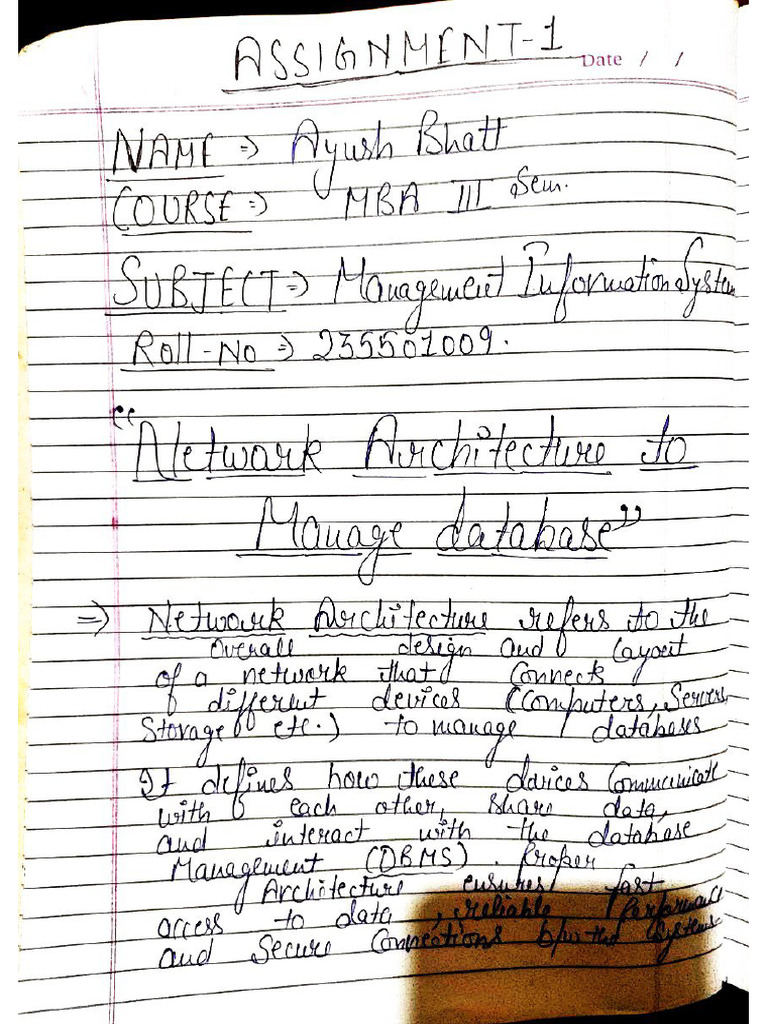 ASSIGNMENT-1
Date / /
NAME => Ayush Bhatt
COURSE => MBA III Sem.
SUBJECT => Management Information System
Roll-No => 235501009.
"Network Architecture to
Manage database"
=> Network Architecture refers to the
overall design and layout
of a network that connects
different devices (Computers, Servers,
Storage etc.) to manage databases
It defines how these davices Communicate
with each other, share data,
and interact with the database
Management (DBMS). Proper
Architecture ensures fast
access to data, reliable Performance
and Secure Connections the Systems